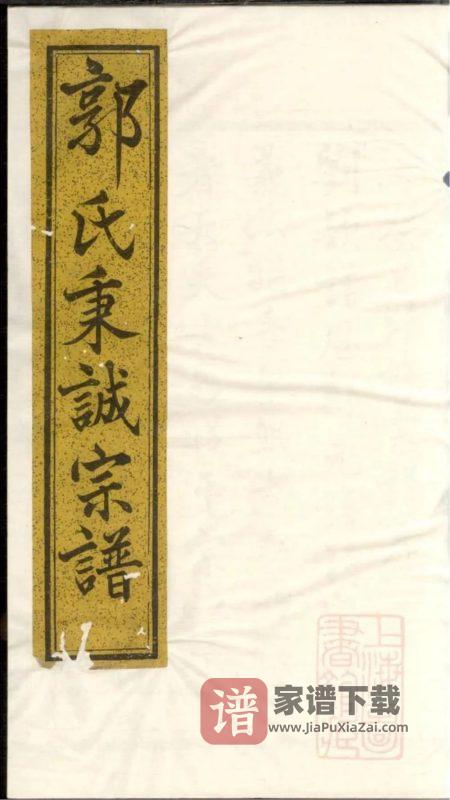 郭氏秉誠宗譜
谱
家谱下载
www.JiaPuXiaZai.com